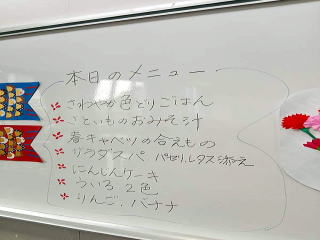 本日のメニュー
さわやか色どりごはん
さといものおみそ汁
春キャベツの合えもの
サラダスパ パセリ、レタス添え
にんじんケーキ
ういろ 2色
りんご、バナナ